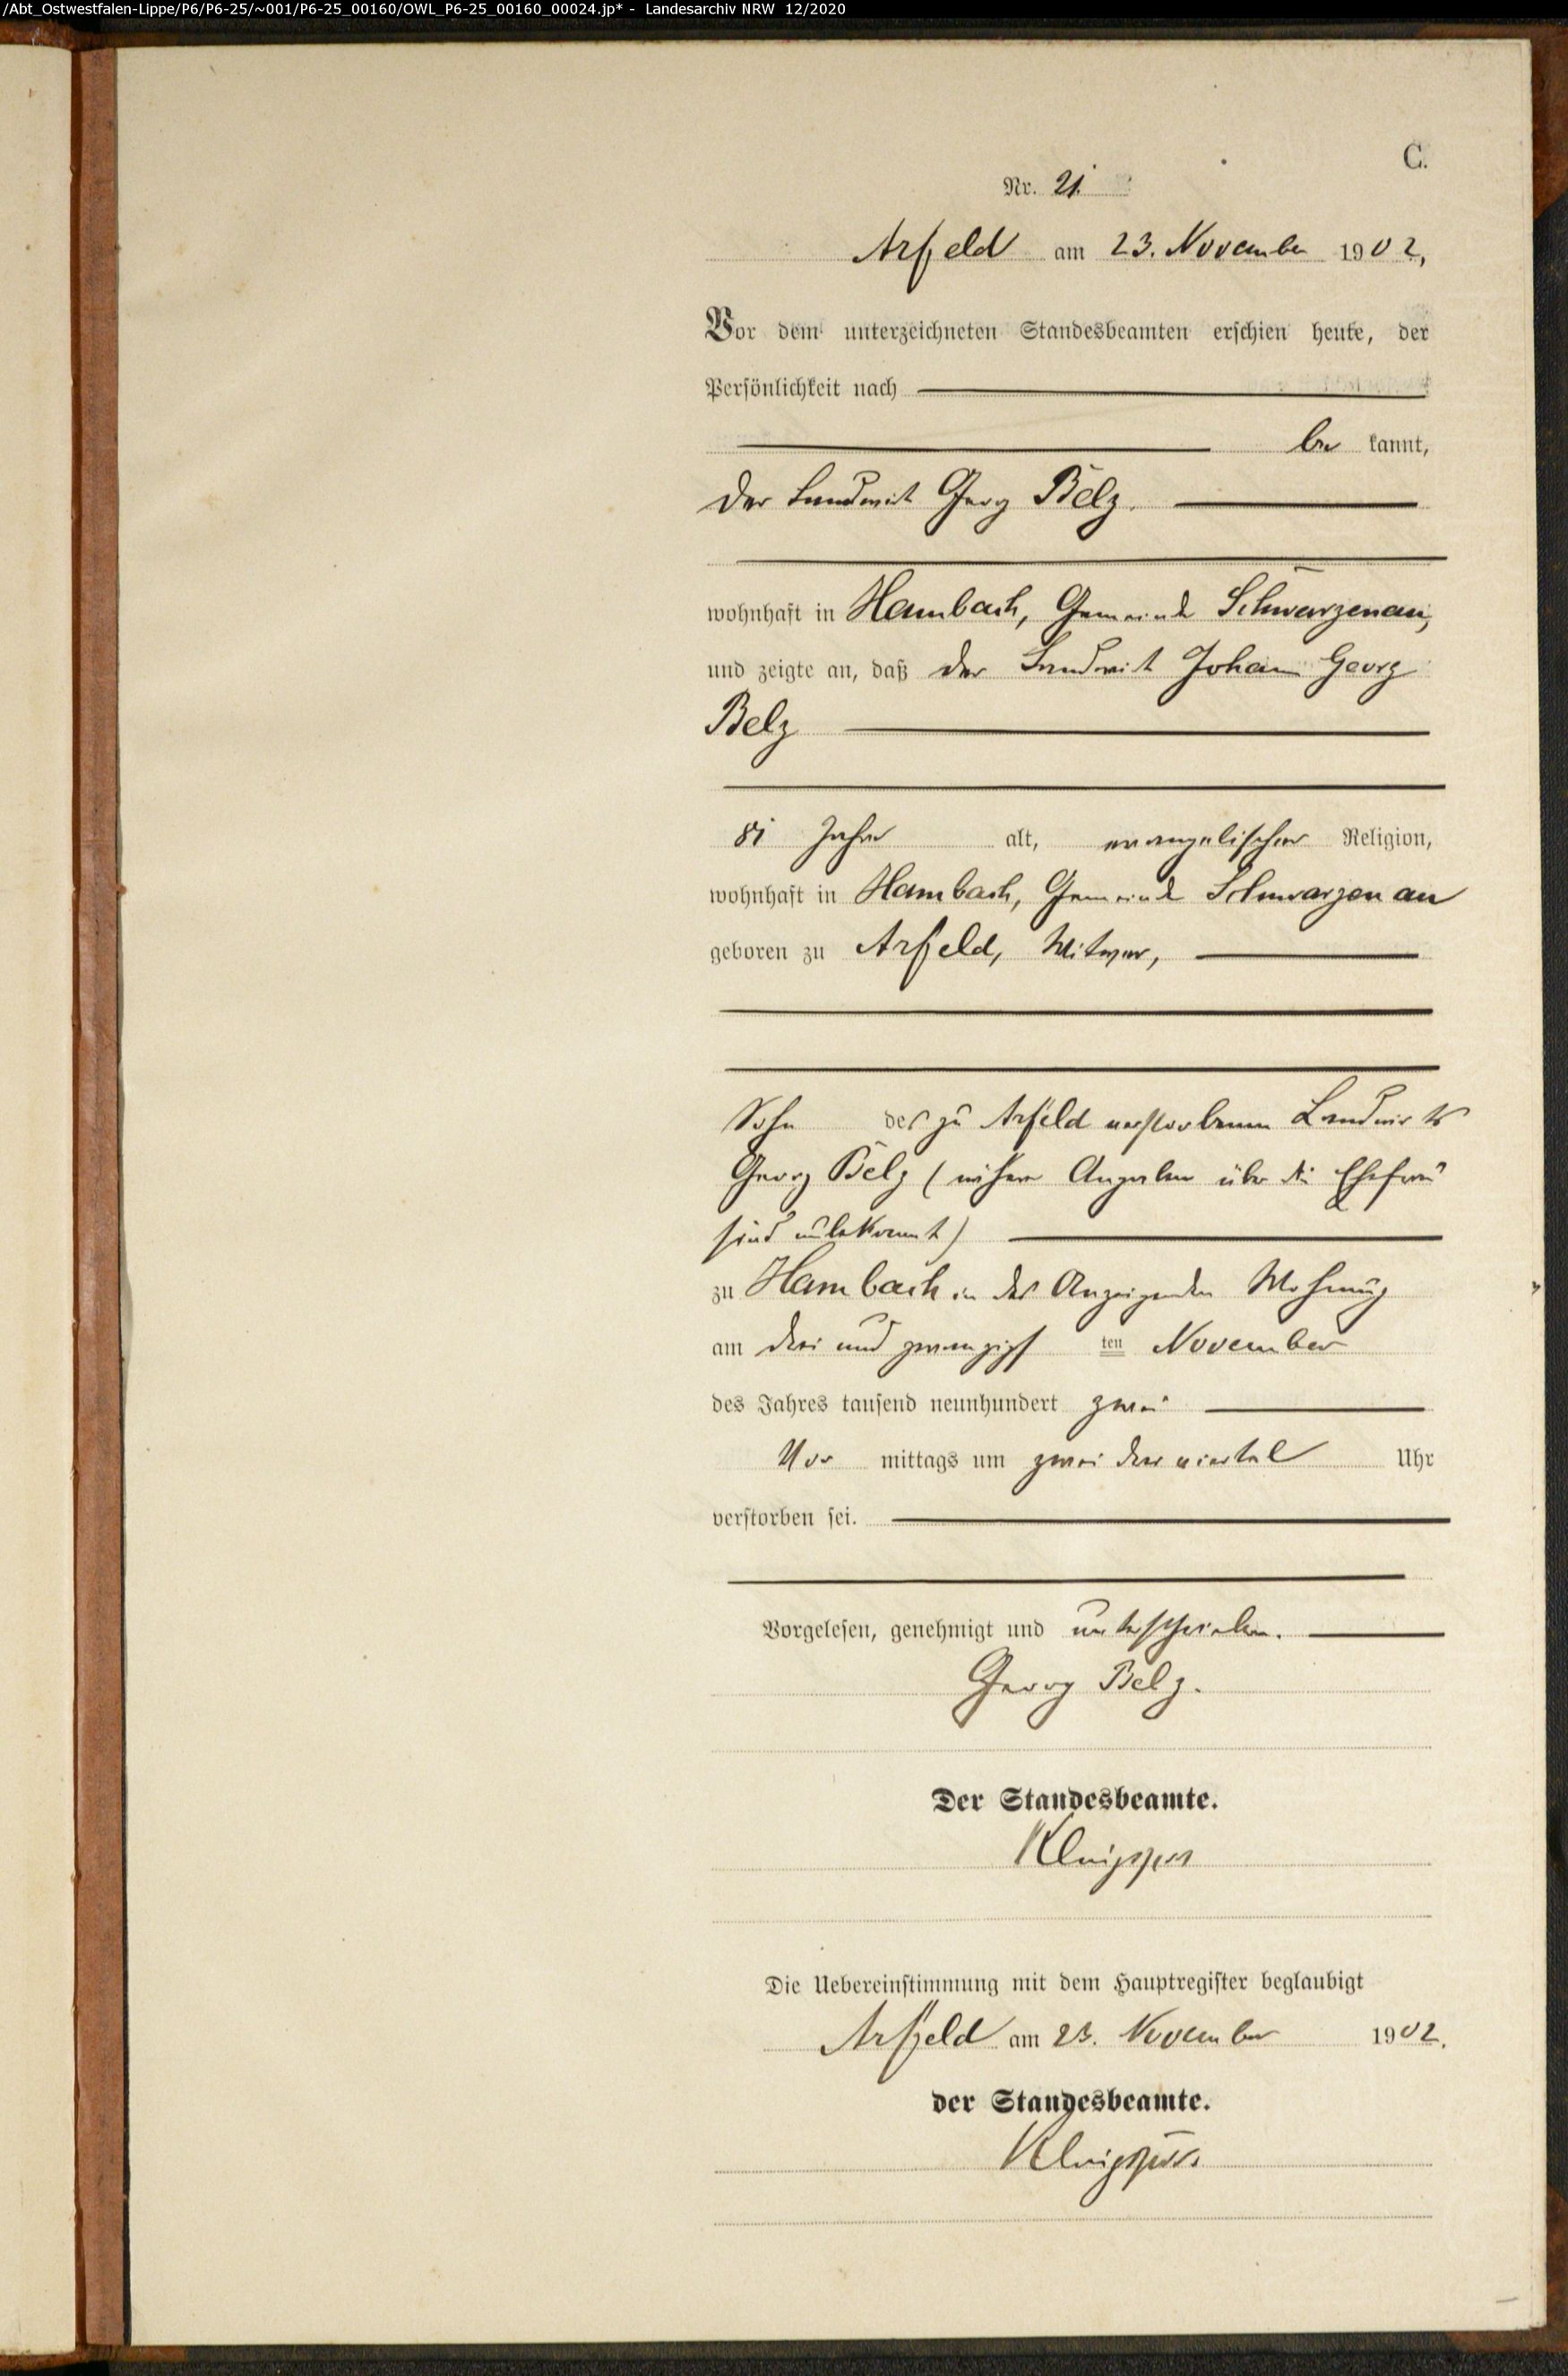 /Abt_Ostwestfalen-Lippe/P6/P6-25/~001/P6-25_00160/OWL_P6-25_00160_00024.jp* - Landesarchiv NRW 12/2020
C.
Nr. 21.
Arfeld am 23. November 1902,
Vor dem unterzeichneten Standesbeamten erschien heute, der
Persönlichkeit nach
be kannt,
der Landwirt Georg Belz.
wohnhaft in Hambach, Gemeinde Schwarzenau,
und zeigte an, daß der Landwirt Johann Georg
Belz
81 Jahre alt, evangelischer Religion,
wohnhaft in Hambach, Gemeinde Schwarzenau
geboren zu Arfeld, Witwer,
Sohn des zu Arfeld verstorbenen Landwirts
Georg Belz (nähere Angaben über die Ehefrau
sind unbekannt)
zu Hambach in des Anzeigenden Wohnung
am drei und zwanzigs ten November
des Jahres tausend neunhundert zwei
Vor mittags um zwei drei viertel Uhr
verstorben sei.
Vorgelesen, genehmigt und unterschrieben.
Georg Belz.
Der Standesbeamte.
Die Uebereinstimmung mit dem Hauptregister beglaubigt
Arfeld am 23. November 1902.
der Standesbeamte.